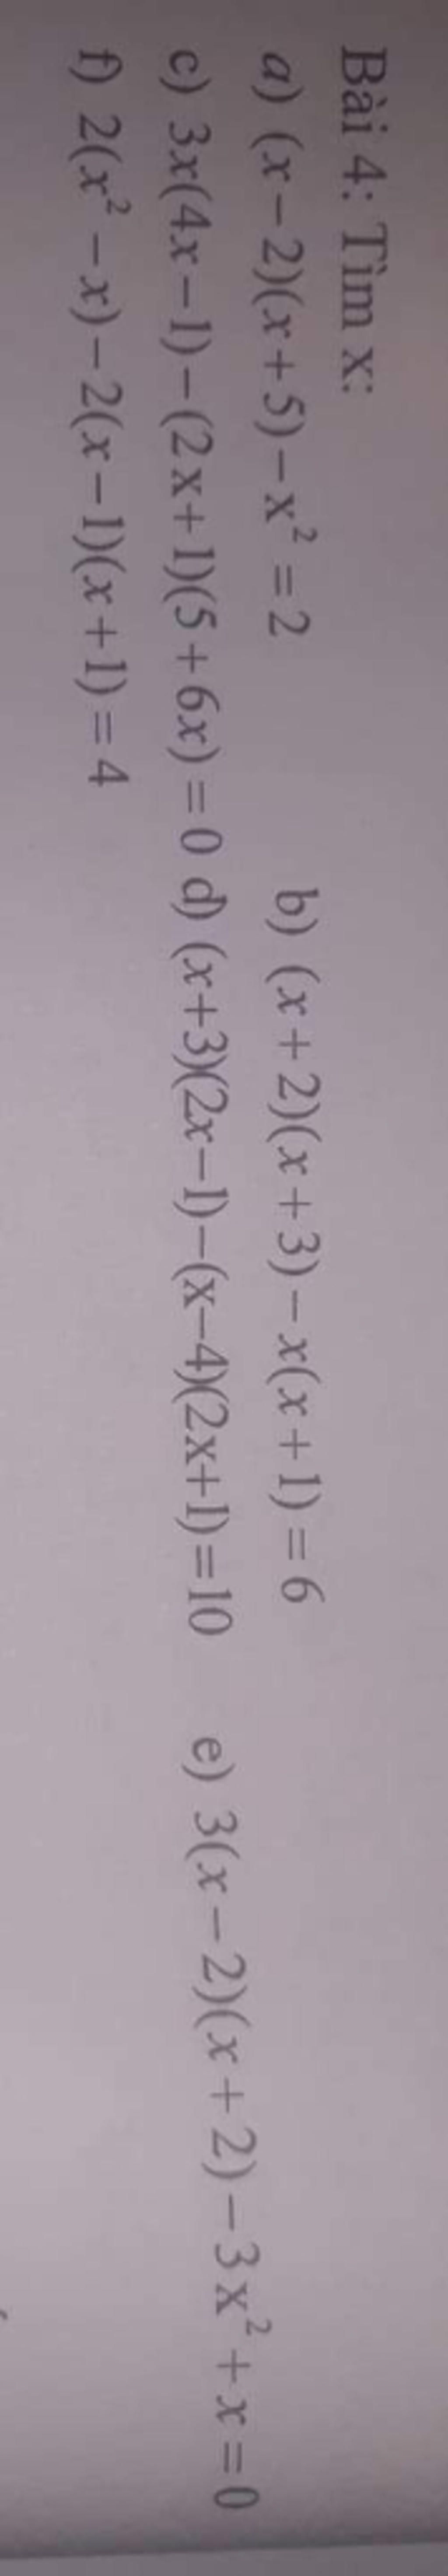 Bài 4: Tìm x:
a) (x−2)(x+5)−x²=2 b) (x+2)(x+3)−x(x+1)=6
c) 3x(4x−1)−(2x+1)(5+6x)=0 d) (x+3)(2x−1)−(x−4)(2x+1)=10 e) 3(x−2)(x+2)−3x²+x=0
f) 2(x²−x)−2(x−1)(x+1)=4